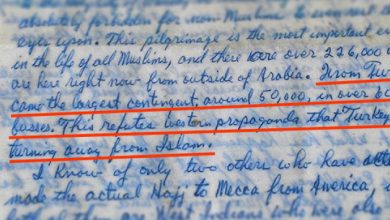 absolutely forbidden for non Muslims to
eyes upon. This pilgrimage is the most important
in the life of all Muslims, and there were over 226,000
are here right now from outside of Arabia. From
came the largest contingent, around 50,000, in over
busses. This refutes western propaganda that Turkey
turning away from Islam.
I know of only two others who have
made the actual Hajj to Mecca from America,
who were also